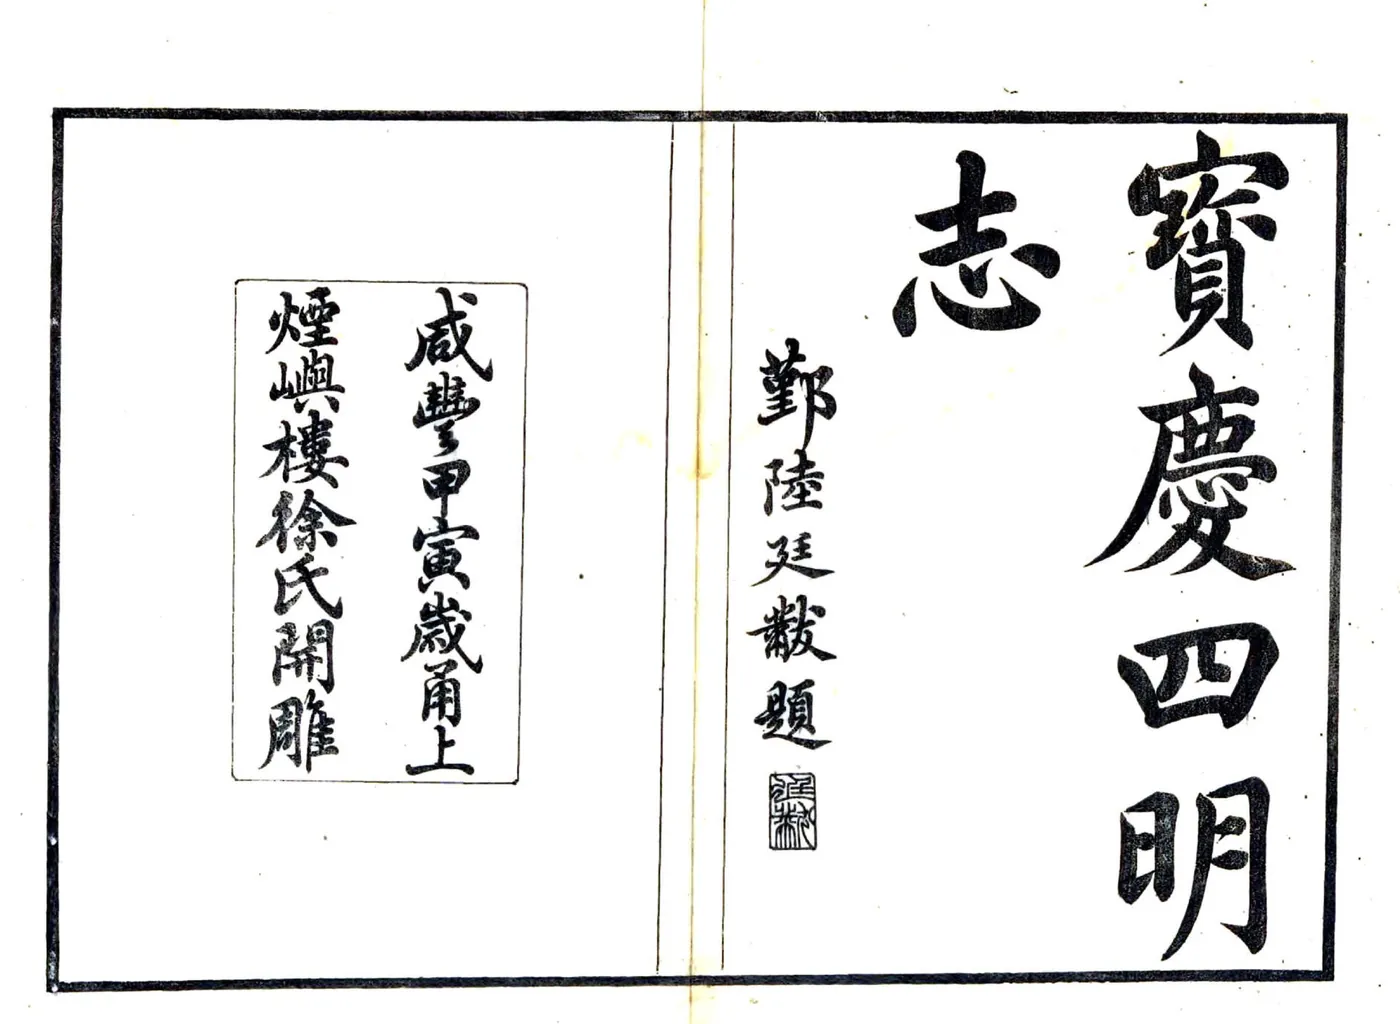 寶慶四明
志
鄞陸廷黻題
廷黻
咸豐甲寅歲甬上
煙嶼樓徐氏開雕